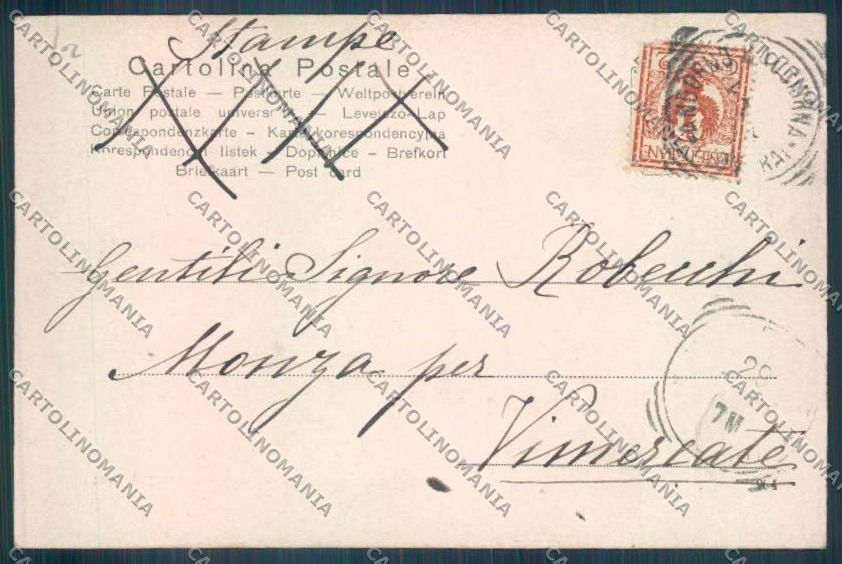 Stampe
Cartolina Postale
Carte Postale — Postkarte — Weltpostverein
Union postale universelle — Levelező-Lap
Correspondenzkarte – Karta korespondencyjna
Korespondenční listek – Dopisnice – Brefkort
Briefkaart — Post card
Gentili Signore Robecchi
Monza per
Vimercate
29
7M
CARTOLINOMANIA